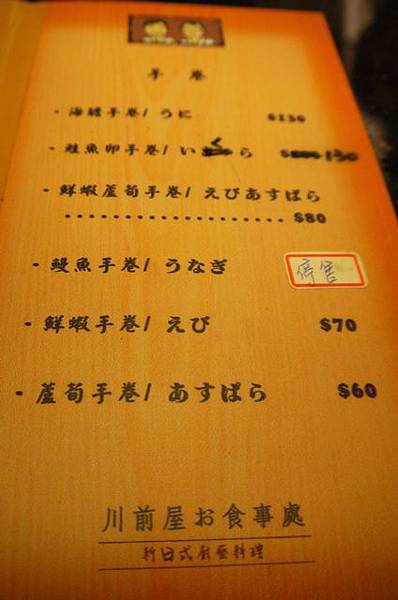 手卷
·海鱔手卷/うに $130
·鮭魚卵手卷/いくら 130
·鮮蝦蘆筍手卷/えびあすぱら
.................... $80
·鰻魚手卷/うなぎ 停售
·鮮蝦手卷/えび $70
·蘆筍手卷/あすぱら $60
川前屋お食事處
新日式廚藝料理